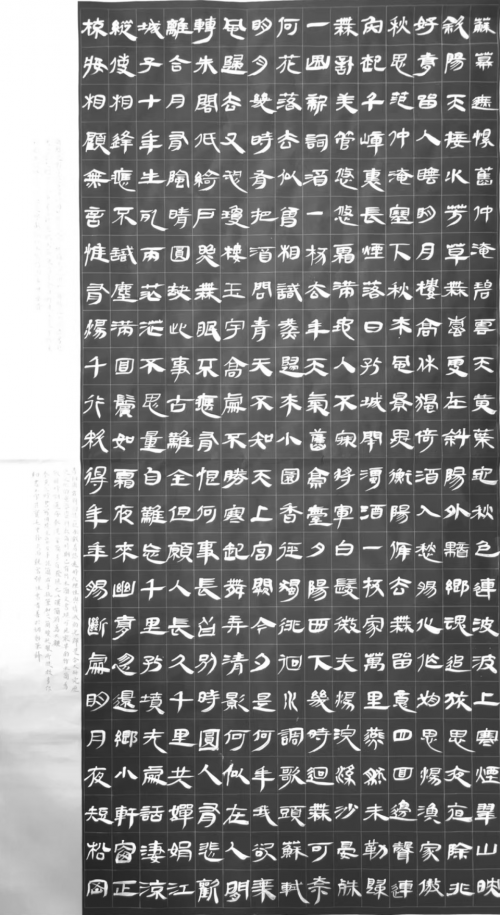 蘇幕遮懷舊仲淹碧雲天黃葉地秋色連波波上寒煙翠山映
斜陽天接水芳草無情更在斜陽外黯鄉魂追旅思夜夜除非
好夢留人睡明月樓高休獨倚酒入愁腸化作相思淚漁家傲
秋思范仲淹塞下秋來風景異衡陽雁去無留意四面邊聲連
角起千嶂裏長煙落日孤城閉濁酒一杯家萬里燕然未勒歸
無計羌管悠悠霜滿地人不寐將軍白髮征夫淚浣溪沙晏殊
一曲新詞酒一杯去年天氣舊亭臺夕陽西下幾時迴無可奈
何花落去似曾相識燕歸來小園香徑獨徘徊水調歌頭蘇軾
明月幾時有把酒問青天不知天上宮闕今夕是何年我欲乘
風歸去又恐瓊樓玉宇高處不勝寒起舞弄清影何似在人間
轉朱閣低綺戶照無眠不應有恨何事長向別時圓人有悲歡
離合月有陰晴圓缺此事古難全但願人長久千里共嬋娟江
城子十年生死兩茫茫不思量自難忘千里孤墳無處話淒涼
縱使相逢應不識塵滿面鬢如霜夜來幽夢忽還鄉小軒窗正
梳妝相顧無言惟有淚千行料得年年腸斷處明月夜短松岡